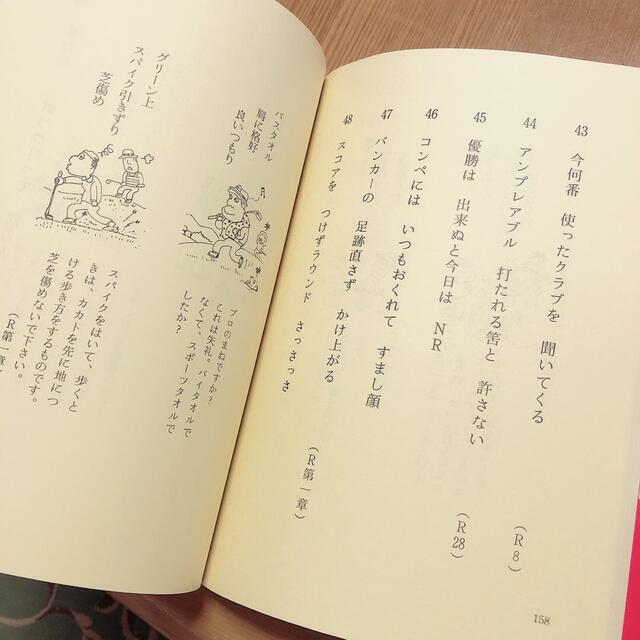 43 今何番 使ったクラブを 聞いてくる
(R8)
44 アンプレアブル 打たれる筈と 許さない
(R28)
45 優勝は 出来ぬと今日は NR
46 コンペには いつもおくれて すまし顔
47 バンカーの 足跡直さず かけ上がる
(R第一章)
48 スコアを つけずラウンド さっさっさ
158
バスタオル
肩に格好
良いつもり
プロのまねですか?
これは失礼。バイタオルで
なくて、スポーツタオルで
したか?
グリーン上
スパイク引きずり
芝傷め
スパイクをはいて、歩くと
きは、カカトを先に地につ
ける歩き方をするものです。
芝を傷めないで下さい。
(R第一章)